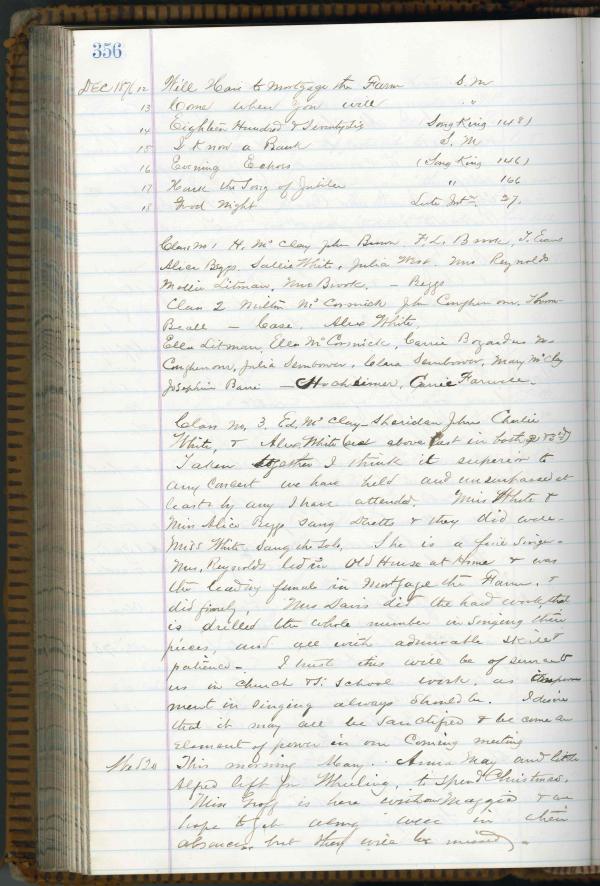 356
DEC 1876 12 Will Have to Mortgage the Farm S. M
13 Come when you will "
14 Eighteen Hundred & Seventy Six (Song King 148)
15 I Know a Bank S. M
16 Evening Echos (Song King 146)
17 Hark the Song of Jubilee " 166
18 Good Night 37.
Class No 1 H. McClay John Brown F. L. Brook, T. Evans
Alice Biggs, Sallie White, Julia West. Mrs Reynolds
Mollie Litman, Mrs Brook, — Biggs
Class 2 Milton McCormick John Coughenour,
Beall — Case. Alex White.
Ella Litman, Ella McCormick, Carrie Bozardus
Coughenour, Julia Sembower, Clara Sembower, Mary McClay
Josephine — Hochheimer, Carrie
Class No. 3. Ed. McClay — Sheridan Johns Charlie
White, & Alex White above in both 2 & 3d)
Taken together I think it superior to
any Concert we have held and unsurpassed at
least by any I have attended. Miss White &
Miss Alice Biggs sang Duetts & they did well.
Miss White sang the Solo. She is a fine singer.
Mrs. Reynolds led in Old House at Home & was
the leading female in Mortgage the Farm, &
did finely. Mrs Davis did the hard work, that
is drilled the whole number in singing their
pieces, and all with admirable skill &
patience — I trust this will be of service to
us in Church & S. School work, as
ment in singing always should be. I desire
that it may all be sanctified & become an
element of power in our coming meeting
Wed 20 This morning Mary. Anna May and little
Alfred left for Wheeling, to spend Christmas.
Miss is here with Maggie & we
hope to get along well in their
absence, but they will be missed.